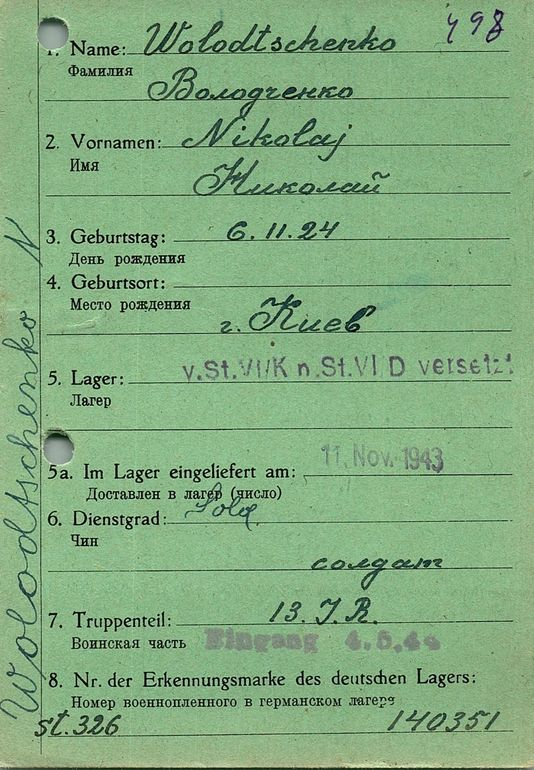 498
1. Name: Wolodtschenko
Фамилия
Володченко
2. Vornamen: Nikolaj
Имя
Николай
3. Geburtstag: 6.11.24
День рождения
4. Geburtsort:
Место рождения
г. Киев
v. St. VI/K n. St. VI D versetzt
5. Lager:
Лагер
11. Nov. 1943
5a. Im Lager eingeliefert am:
Доставлен в лагер (число)
6. Dienstgrad: Sold
Чин
солдат
7. Truppenteil: 13. J.R.
Воинская часть Eingang 4.5.44
8. Nr. der Erkennungsmarke des deutschen Lagers:
Номер военнопленного в германском лагере
St. 326 140351
Wolodtschenko N